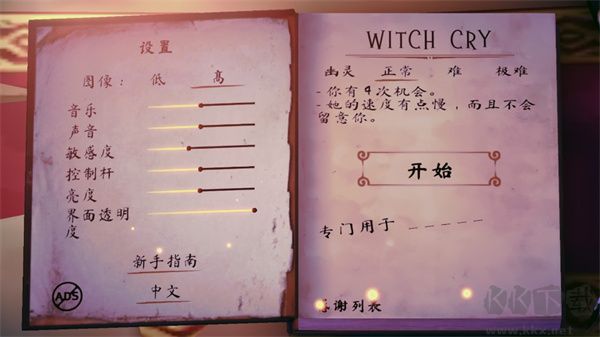 设置
图像： 低 高
音乐
声音
敏感度
控制杆
亮度
界面透明
度
新手指南
中文
ADS
WITCH CRY
幽灵 正常 难 极难
- 你有4次机会。
- 她的速度有点慢，而且不会
留意你。
开始
专门用于 _ _ _ _ _
感谢列表
KK下载
www.kkx.net